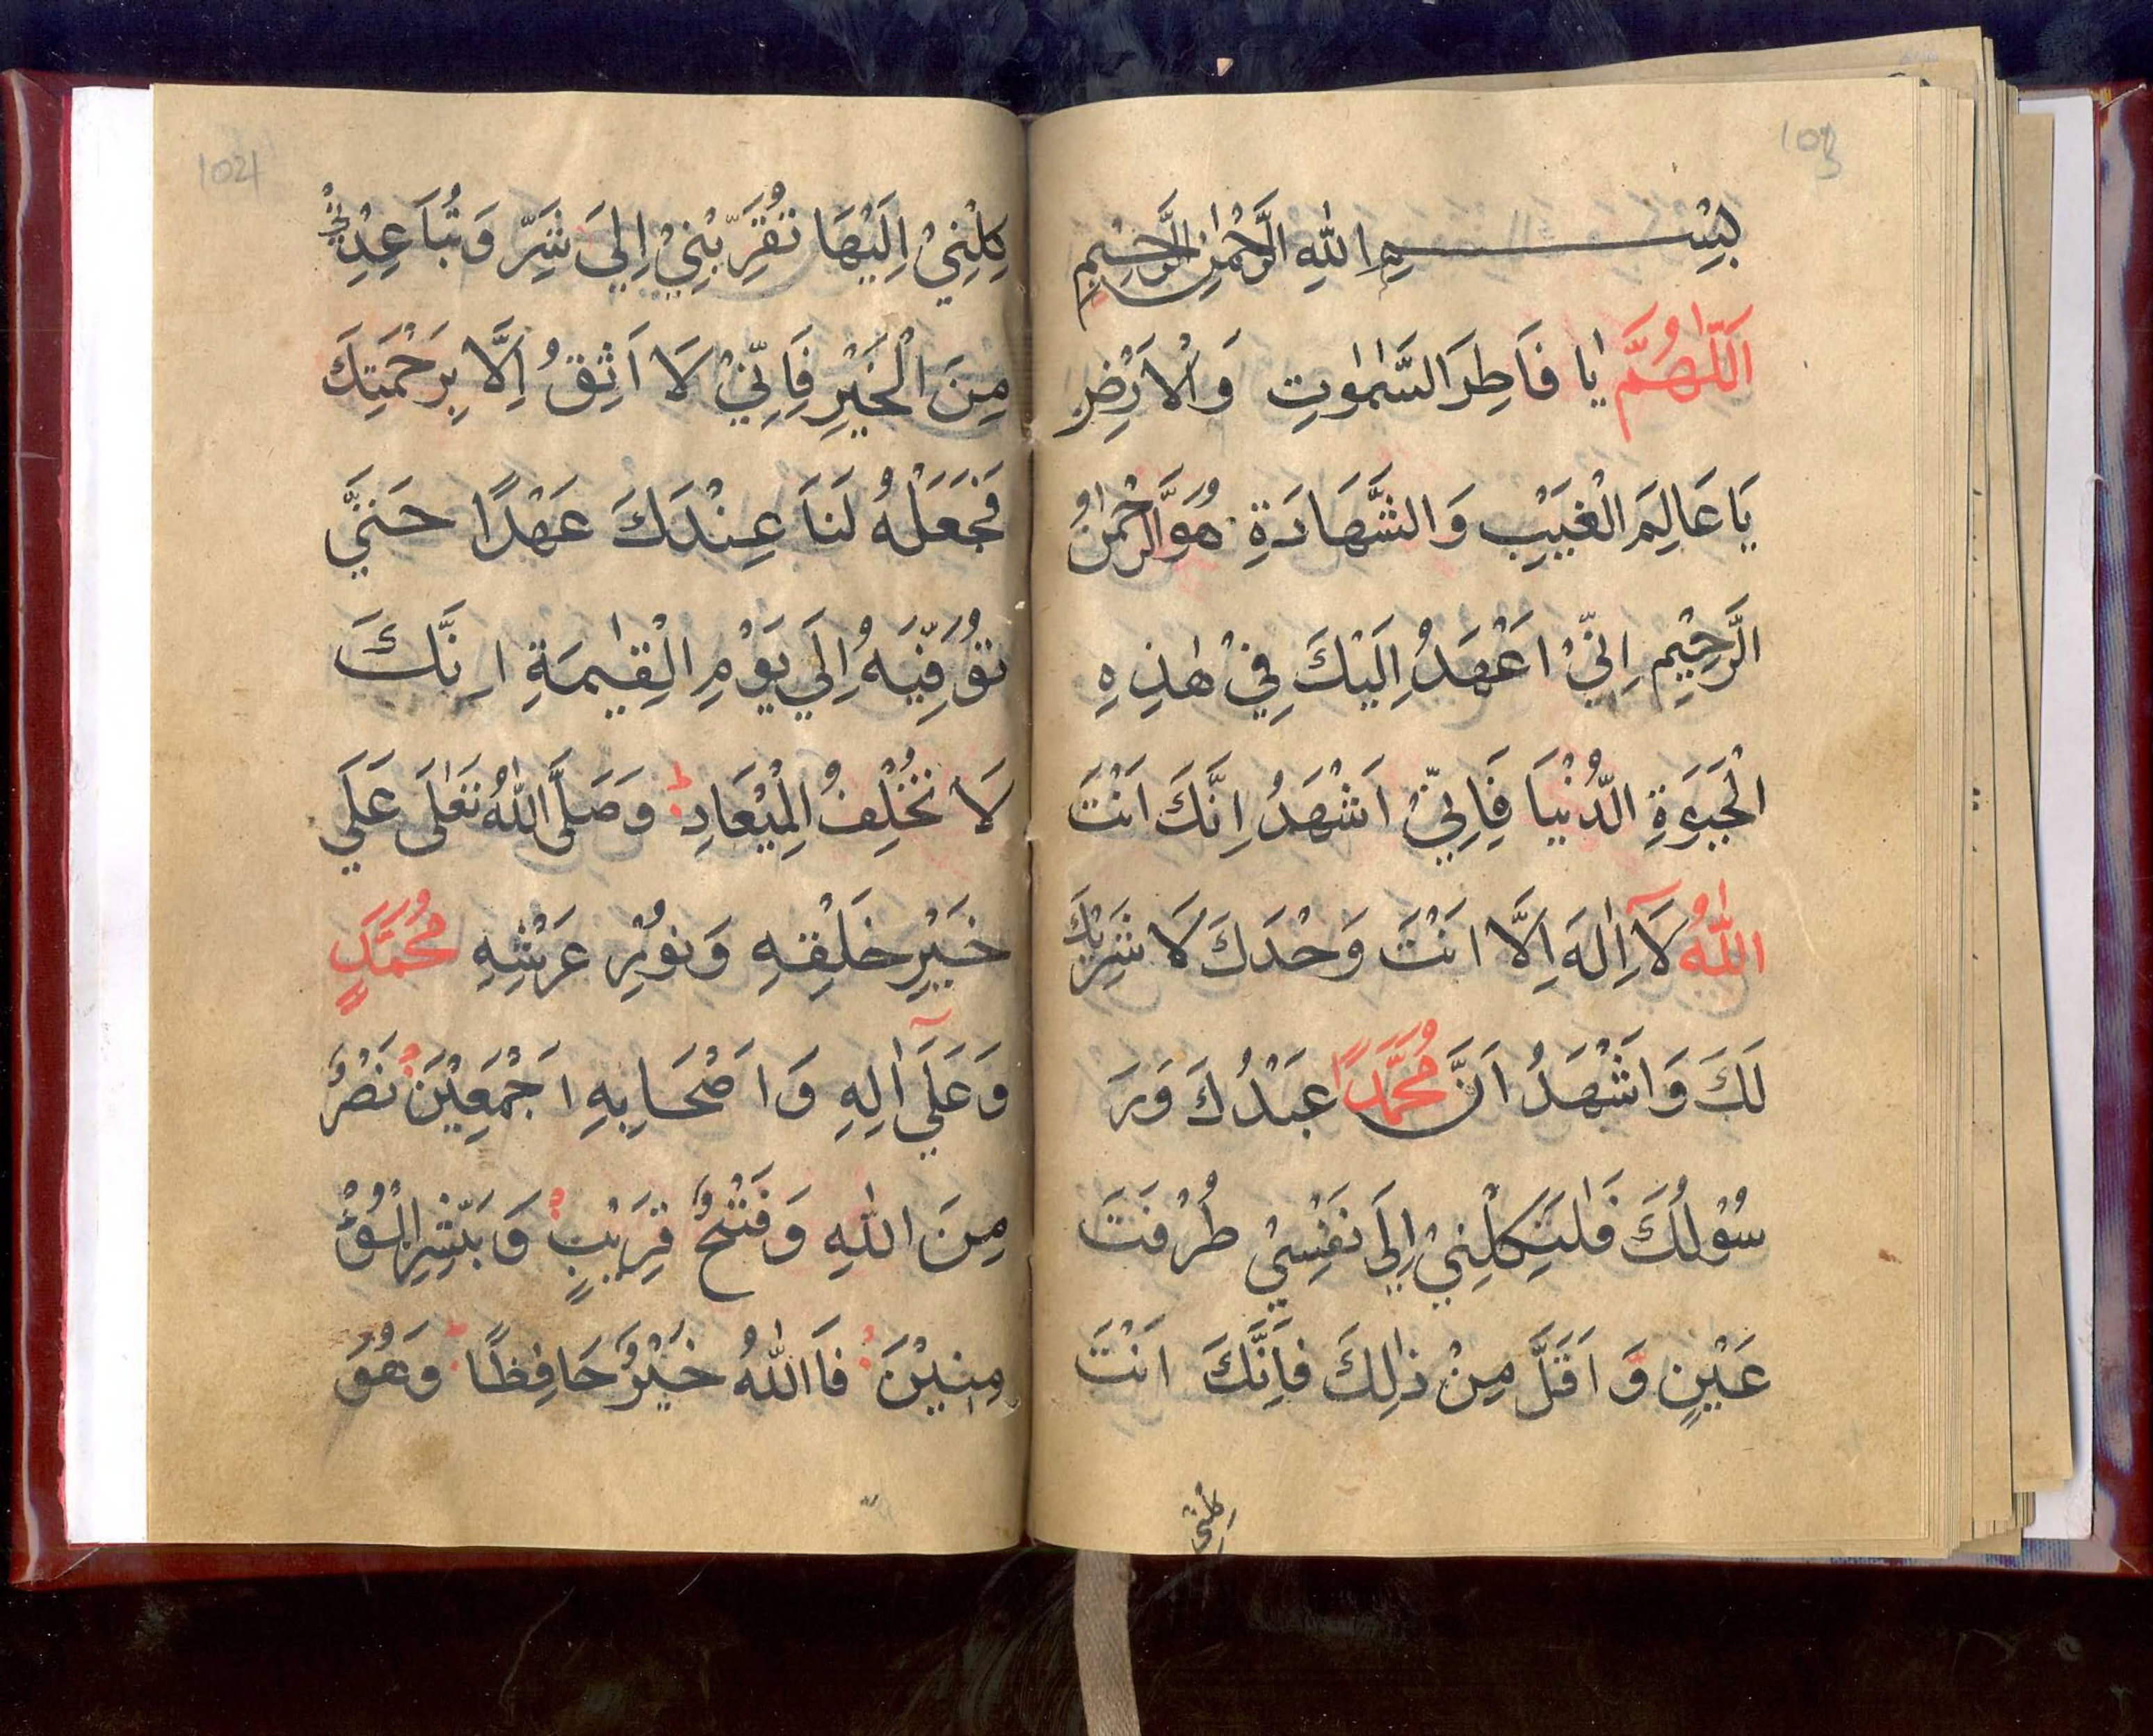 103
بِسْــــــمِ اللهِ الرَّحْمٰنِ الرَّحِيْمِ
اَللّٰهُمَّ يٰا فَاطِرَ السَّمٰوٰتِ وَالْاَرْضِ
يَا عَالِمَ الْغَيْبِ وَالشَّهَادَةِ هُوَ الرَّحْمٰنُ
الرَّحِيْمِ اِنِّيْ اَعْهَدُ اِلَيْكَ فِيْ هٰذِهِ
الْحَيَوةِ الدُّنْيَا فَاِنِّيْ اَشْهَدُ اِنَّكَ اَنْتَ
اللّٰهُ لَآ اِلٰهَ اِلَّا اَنْتَ وَحْدَكَ لَا شَرِيْكَ
لَكَ وَاَشْهَدُ اَنَّ مُحَمَّدًا عَبْدُكَ وَرَ
سُوْلُكَ فَلٰتَكِلْنِيْ اِلَى نَفْسِيْ طُرْفَتَ
عَيْنٍ وَّ اَقَلَّ مِنْ ذٰلِكَ فَاِنَّكَ اَنْتَ
كلنى
1021
كِلْنِيْ اِلَيْهَا تُقَرِّبْنِيْ اِلَيَ شَرِّ وَتُبَاعِدْنِيْ
مِنَ الْخَيْرِ فَاِنِّيْ لَا اَثِقُ اِلَّا بِرَحْمَتِكَ
فَجَعَلْهُ لَنَا عِنْدَكَ عَهْدًا حَتَّيَ
تُوَفِّيَهُ اِلَي يَوْمِ الْقِيٰمَةِ اِنَّكَ
لَا تُخْلِفُ الْمِيْعَادِ وَصَلَّى اللّٰهُ تَعٰلَى عَلَي
خَيْرِ خَلْقِهِ وَنُوْرِ عَرْشِهِ مُحَمَّدٍ
وَعَلَيٓ اٰلِهِ وَاَصْحَابِهِ اَجْمَعِيْنَ نَصْرٌ
مِنَ اللّٰهِ وَفَتْحٌ قَرِيْبٍ وَبَشِّرِ الْمُؤْ
مِنِيْنَ فَاَاللّٰهُ خَيْرٌ حَافِظًا وَهُوَ